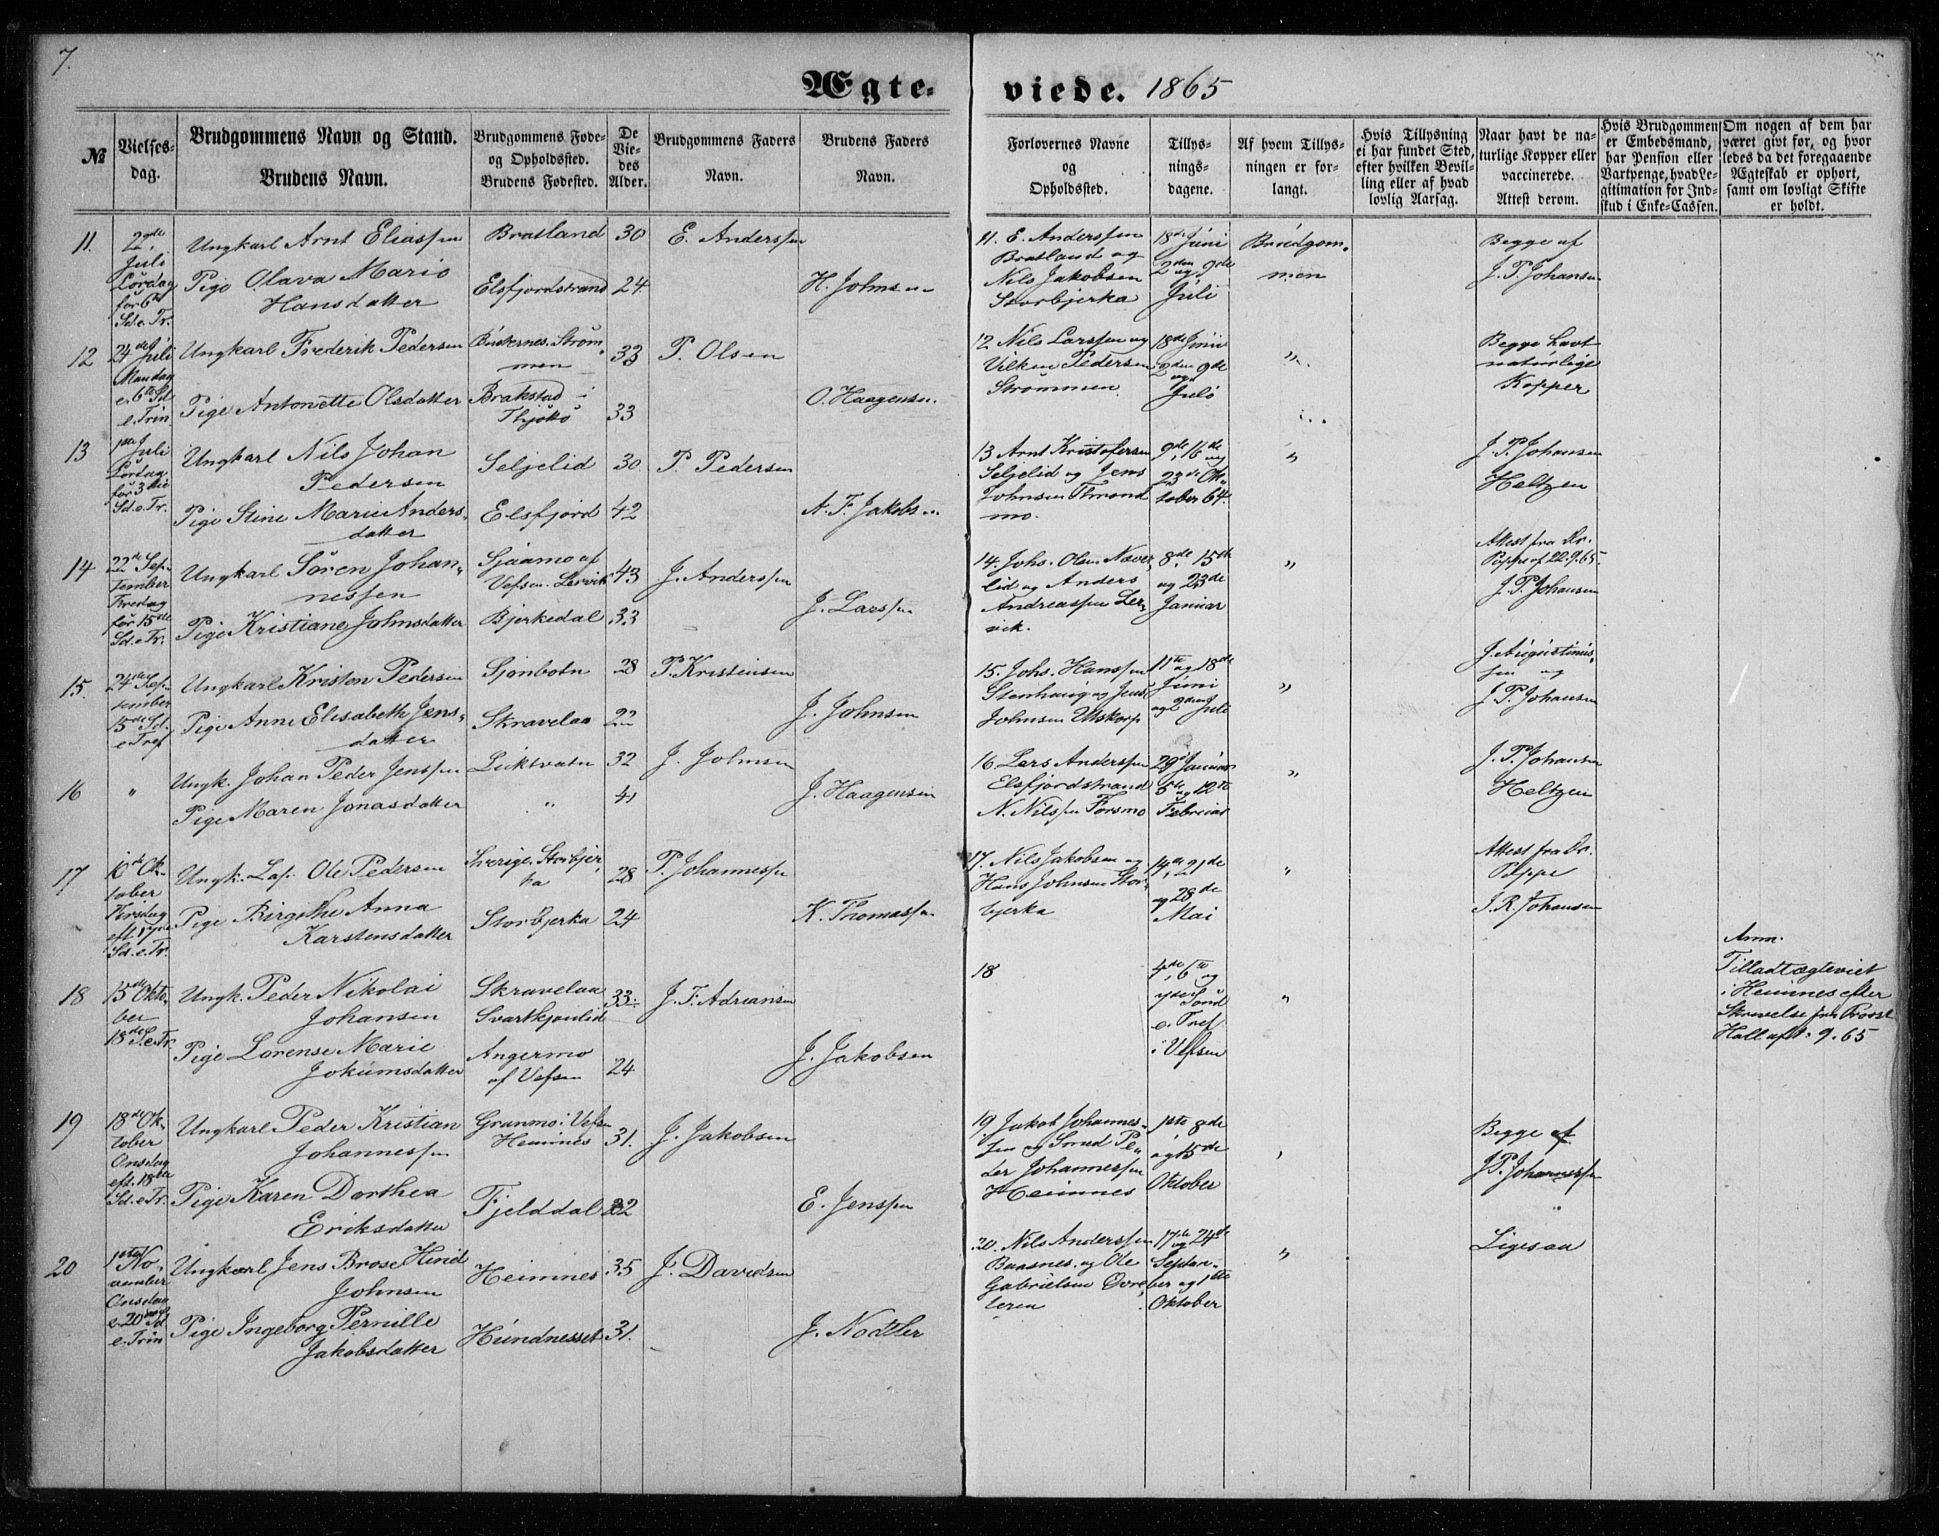 7.
Ægte-
viede. 1865
№
Vielses-
dag.
Brudgommens Navn og Stand.
Brudens Navn.
Brudgommens Føde-
og Opholdssted.
Brudens Fødested.
De
Vie-
des
Alder.
Brudgommens Faders
Navn.
Brudens Faders
Navn.
Forlovernes Navne
og
Opholdssted.
Tillys-
nings-
dagene.
Af hvem Tillys-
ningen er for-
langt.
Hvis Tillysning
ei har fundet Sted,
efter hvilken Bevil-
ling eller af hvad
lovlig Aarsag.
Naar havt de na-
turlige Kopper eller
vaccinerede.
Attest derom.
Hvis Brudgommen
er Embedsmand,
har Pension eller
Vartpenge, hvad Le-
gitimation for Ind-
skud i Enke-Cassen.
Om nogen af dem har
været givt før, og hvor
ledes da det foregaaende
Ægteskab er ophørt,
samt om lovligt Skifte
er holdt.
11.
2den
Juli
Lørdag
før 6te
Sd. e. Tr.
Ungkarl Arnt Eliassen
Pige Olava Marie
Hansdatter
Brasland
Elsfjordstrand
30
24
E. Anderssen
H. Johnsen
11. E. Anderssen
Brasland og
Nils Jakobsen
Storbjerka
18de Juni
2den og 9de
Juli
Brudgom-
men
Begge af
J. P. Johansen
12
24de Juli
Mandag
e. 6te Sd
e. Trin
Ungkarl Frederik Pedersen
Pige Antonette Olsdatter
Buskernes. Strøm-
men
Brakstad i
Thjøttø
33
33
P. Olsen
O. Haagensen.
12 Nils Larssen og
Vilken Pedersen
Strømmen.
18de Juni
2den 9de
Juli
"
Begge havt
naturlige
Kopper
13
1ste Juli
Lørdag
før 3die
Sd. e. Tr.
Ungkarl Nils Johan
Pedersen
Pige Stine Marie Anders-
datter
Seljelid
Elsfjord
30
42
P. Pedersen
A. F. Jakobsen
13 Arnt Kristofersen
Seljelid og Jens
Johnsen Almond
mo.
9de, 16de og
23de Ok-
tober 64.
"
J. P. Johansen
Heltzen
14
22de Sep-
tember
Fredag
før 15de
Sd. e. Tr.
Ungkarl Søren Johan-
nessen
Pige Kristiane Johnsdatter
Sjaamo af
Vefsen. Lervik
Bjerkedal
43
33
J. Anderssen
J. Larssen
14. Johs. Olsen Næver-
lid og Anders
Andreassen Ler-
vik.
8de, 15de
og 23de
Januar
"
Attest fra Dr.
Poppe af 22.9.65.
J. P. Johansen
15.
24de Sep-
tember
15de Sd.
e. Tref
Ungkarl Kristen Pedersen
Pige Anne Elisabeth Jens-
datter
Sjonbotn
Skravelaa
28
22
P. Kristensen
J. Johnsen
15. Johs. Hanssen
Stenhaug og Jens
Johnsen Utskarp
11te og 18de
Juni
og 2den Juli
"
J. Augustinus-
sen og
J. P. Johansen
16
"
Ungk. Johan Peder Jenssen
Pige Maren Jonasdatter
Luktvatn
"
32
41
J. Johnsen
J. Haagensen
16. Lars Anderssen
Elsfjordstrand
N. Nilssen Forsmo
29 Januar
5te og 12te
Februar
"
J. P. Johansen
Heltzen
17
10de Ok-
tober
Tirsdag
eft. 17de
Sd. e. Tr.
Ungk. Lap. Ole Pedersen
Pige Birgithe Anna
Karstensdatter
Sverige. Storbjer-
ka
Storbjerka
28
24
P. Johannessen
K. Thomassen
17. Nils Jakobsen og
Hans Johnsen Stor-
bjerka
14de, 21de
og 28de
Mai
"
Attest fra Dr.
Poppe
J. P. Johansen
18
15de Okto-
ber
18de S. e. Tr.
Ungk. Peder Nikolai
Johansen
Pige Lorense Marie
Jokumsdatter
Skravelaa
Svartkjønlid
Angermo
af Vefsen
33.
24
J. F. Adriansen
J. Jakobsen
18
4de, 6te og
7de Sønd
e. Tref
i Vefsen
"
Anm.
Tilladt ægteviet
i Hemnes efter
Skrivelse fra Provst
Hall af 1.9.65
19
18de Ok-
tober
Onsdag
eft. 18de
Sd. e. Tr.
Ungkarl Peder Kristian
Johannessen
Pige Karen Dorthea
Eriksdatter
Granmo i Vefsn
Hemnes
Fjelddal
31.
22
J. Jakobsen
E. Jenssen
19 Jakob Johannes-
sen og Smed Pe-
der Johannessen
Hemnes
1ste 8de
og 15de
Oktober
Begge af
J. P. Johannessen
20
1ste No-
vember
Onsdag
e. 20de Sd
e. Trin
Ungkarl Jens Brose Hind
Johnsen
Pige Ingeborg Pernille
Jakobsdatter
Hemnes
Hundnesset
35
31.
J. Davidsen
J. Nodtler
20. Nils Anderssen
Baasnes. og Ole
Gabrielsen Øvre-
leren
17de og 24de
Septem-
ber og 1ste
Oktober
"
Ligesaa